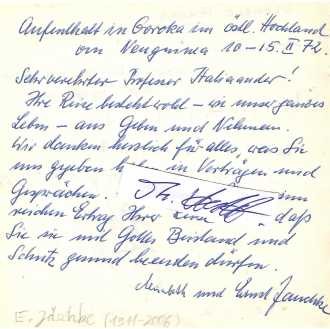 Aufenthalt in Goroka im östl. Hochland
von Neuguinea 10–15. II 72.
Sehr verehrter Professor Italiaander!
Ihre Reise besteht wohl – wie unser ganzes
Leben – aus Geben und Nehmen.
Wir danken herzlich für alles, was Sie
uns gegeben haben in Vorträgen und
Gesprächen. Th.
reichen Ertrag Ihrer Reise daß
Sie sie mit Gottes Beistand und
Schutz gesund beenden dürfen.
und Ernst Jaeschke
E. Jäschke (1911-2006)